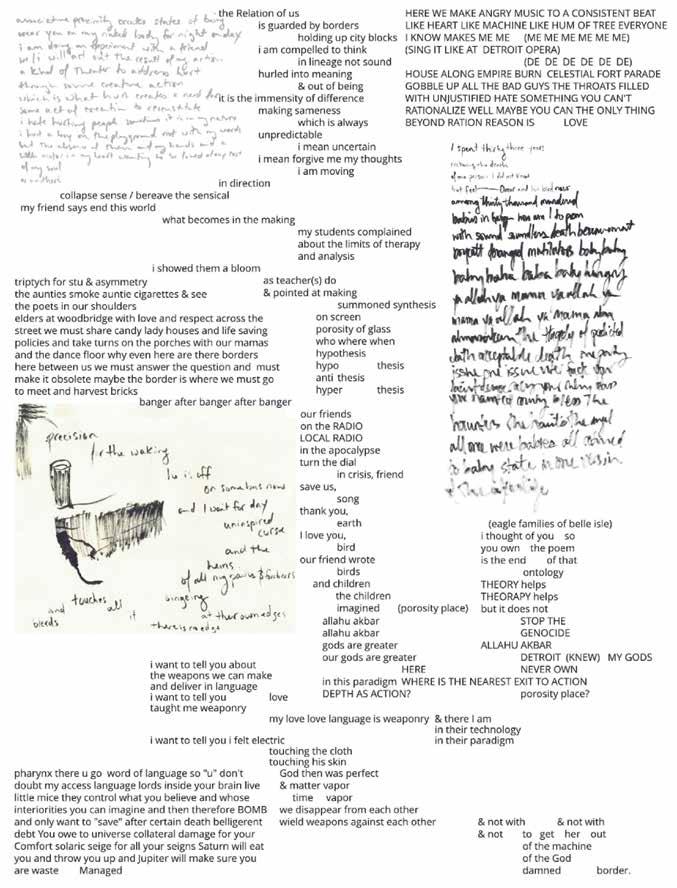 associative proximity creates states of being
i am doing an experiment with a friend
we/i will act out the result of my action
a kind of Theater to address hurt
through some creative action
which is what hurt creates a need for
act of creation to reconstitute
i hate hurting people sometimes it is in my nature
i hurt a boy on the playground not with my words
but the absence of them and my hands and a
of my soul
the Relation of us
is guarded by borders
holding up city blocks
i am compelled to think
in lineage not sound
hurled into meaning
& out of being
it is the immensity of difference
making sameness
which is always
unpredictable
i mean uncertain
i mean forgive me my thoughts
i am moving
in direction
collapse sense / bereave the sensical
my friend says end this world
what becomes in the making
my students complained
about the limits of therapy
and analysis
i showed them a bloom
as teacher(s) do
& pointed at making
summoned synthesis
on screen
porosity of glass
who where when
hypothesis
hypo thesis
anti thesis
hyper thesis
HERE WE MAKE ANGRY MUSIC TO A CONSISTENT BEAT
LIKE HEART LIKE MACHINE LIKE HUM OF TREE EVERYONE
I KNOW MAKES ME ME (ME ME ME ME ME ME)
(SING IT LIKE AT DETROIT OPERA)
(DE DE DE DE DE DE)
HOUSE ALONG EMPIRE BURN CELESTIAL FORT PARADE
GOBBLE UP ALL THE BAD GUYS THE THROATS FILLED
WITH UNJUSTIFIED HATE SOMETHING YOU CAN'T
RATIONALIZE WELL MAYBE YOU CAN THE ONLY THING
BEYOND RATION REASON IS LOVE
I spent thirty three years
reckoning the death
of one person I did not know
but feel
among thirty thousand murdered
babies in baby how am I to poem
with sound soundless death bereavement
baby baba baba baby hungry
ya allah ya mama ya allah ya
mama ya allah ya mama
death acceptable death one party
all one were babies all
triptych for stu & asymmetry
the aunties smoke auntie cigarettes & see
the poets in our shoulders
elders at woodbridge with love and respect across the
street we must share candy lady houses and life saving
policies and take turns on the porches with our mamas
and the dance floor why even here are there borders
here between us we must answer the question and must
make it obsolete maybe the border is where we must go
to meet and harvest bricks
banger after banger after banger
precision
for the waking
lu is off
on somatus now
and I wait for day
uninspired
curse
and the
heins
of all my pains & forbears
bingeing
at their own edges
there is no edge
touches
and all
bleeds it
our friends
on the RADIO
LOCAL RADIO
in the apocalypse
turn the dial
in crisis, friend
save us,
song
thank you,
earth
I love you,
bird
our friend wrote
birds
and children
the children
imagined (porosity place)
allahu akbar
allahu akbar
gods are greater
our gods are greater
HERE
in this paradigm WHERE IS THE NEAREST EXIT TO ACTION
DEPTH AS ACTION? porosity place?
(eagle families of belle isle)
i thought of you so
you own the poem
is the end of that
ontology
THEORY helps
THEORAPY helps
but it does not
STOP THE
GENOCIDE
ALLAHU AKBAR
DETROIT (KNEW) MY GODS
NEVER OWN
i want to tell you about
the weapons we can make
and deliver in language
i want to tell you love
taught me weaponry
my love love language is weaponry & there I am
in their technology
i want to tell you i felt electric in their paradigm
touching the cloth
touching his skin
God then was perfect
& matter vapor
time vapor
we disappear from each other
wield weapons against each other
pharynx there u go word of language so "u" don't
doubt my access language lords inside your brain live
little mice they control what you believe and whose
interiorities you can imagine and then therefore BOMB
and only want to "save" after certain death belligerent
debt You owe to universe collateral damage for your
Comfort solaric seige for all your seigns Saturn will eat
you and throw you up and Jupiter will make sure you
are waste Managed
& not with & not with
& not to get her out
of the machine
of the God
damned border.